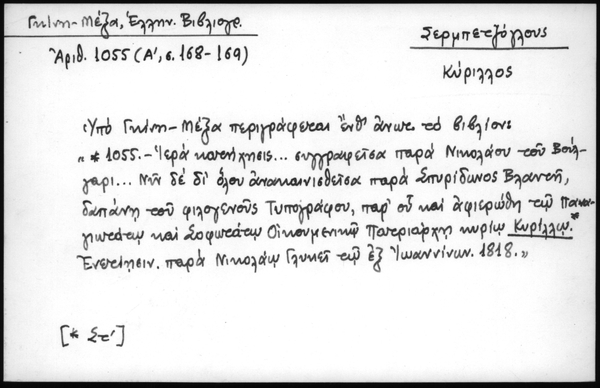 Γκίνη-Μέξα, Ἑλλην. Βιβλιογρ.
Ἀριθ. 1055 (Α', σ. 168-169)
Σερμπετζόγλους
Κύριλλος
Ὑπό Γκίνη-Μέξα περιγράφεται ἔνθ' ἄνωτ. τό βιβλίον:
« * 1055.- Ἱερά κατήχησις... συγγραφεῖσα παρά Νικολάου τοῦ Βούλ-
γαρι... Νῦν δέ δι' ὅλου ἀνακαινισθεῖσα παρά Σπυρίδωνος Βλαντῆ,
δαπάνῃ τοῦ φιλογενοῦς Τυπογράφου, παρ' οὗ καί ἀφιερώθη τῷ Πανα-
γιωτάτῳ καί Σοφωτάτῳ Οἰκουμενικῷ Πατριάρχῃ κυρίῳ Κυρίλλῳ.*
Ἐνετίῃσιν. παρά Νικολάῳ Γλυκεῖ τῷ ἐξ Ἰωαννίνων. 1818.»
[* Στ']